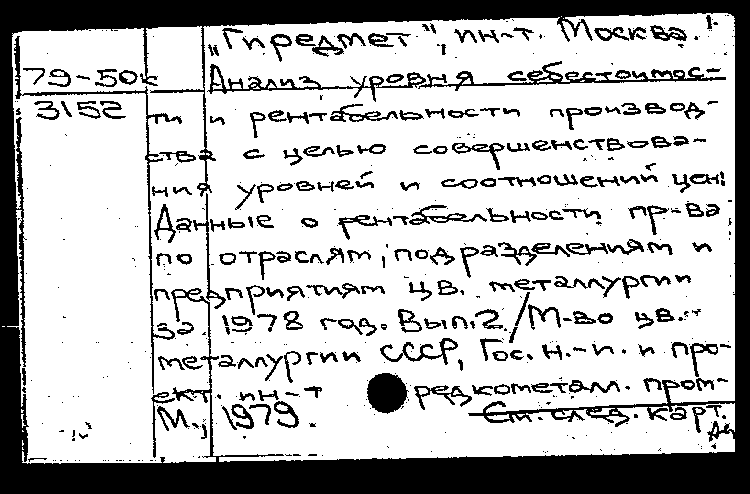 „Гиредмет", ин-т. Москва.
79-50к Анализ уровня себестоимос-
3152 ти и рентабельности производ-
ства с целью совершенствова-
ния уровней и соотношений цен:
Данные о рентабельности пр-ва
по отраслям, подразделениям и
предприятиям цв. металлургии
за 1978 год. Вып.2/М-во цв.
металлургии СССР, Гос. н.-и. и про-
ект. ин-т редкометалл. пром-
М., 1979. См. след. карт.